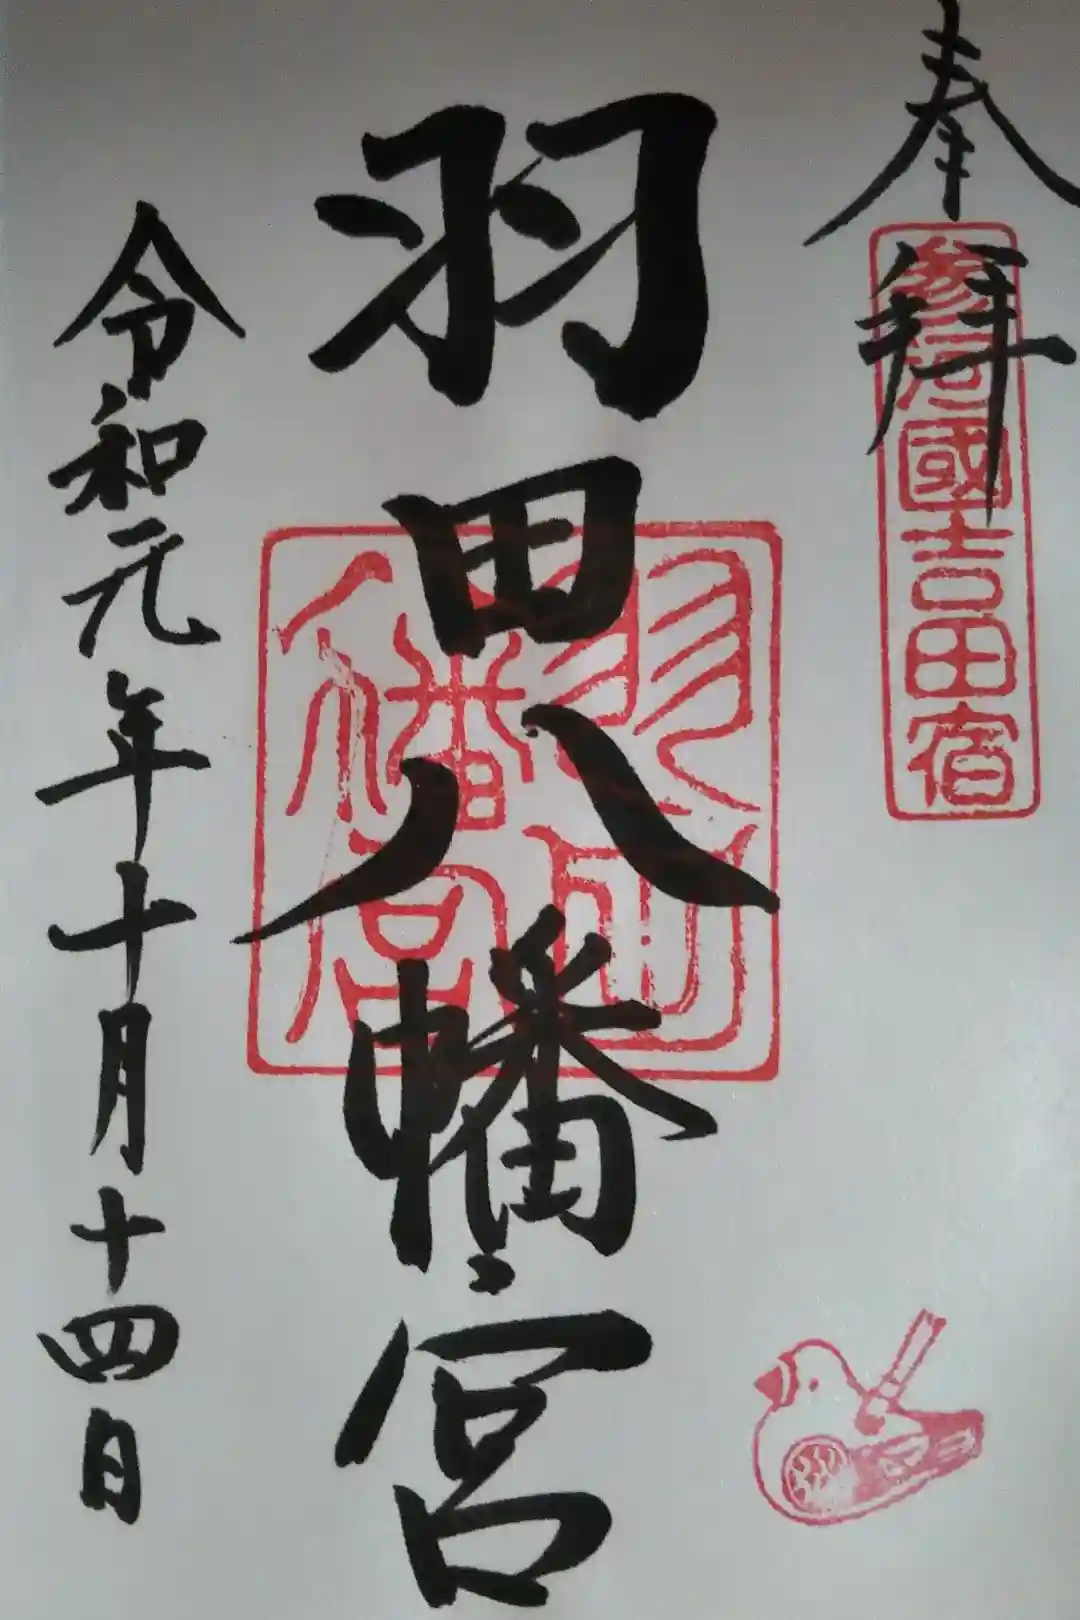 奉拝
参河國吉田宿
羽田八幡宮
羽田八幡宮
令和元年十月十四日